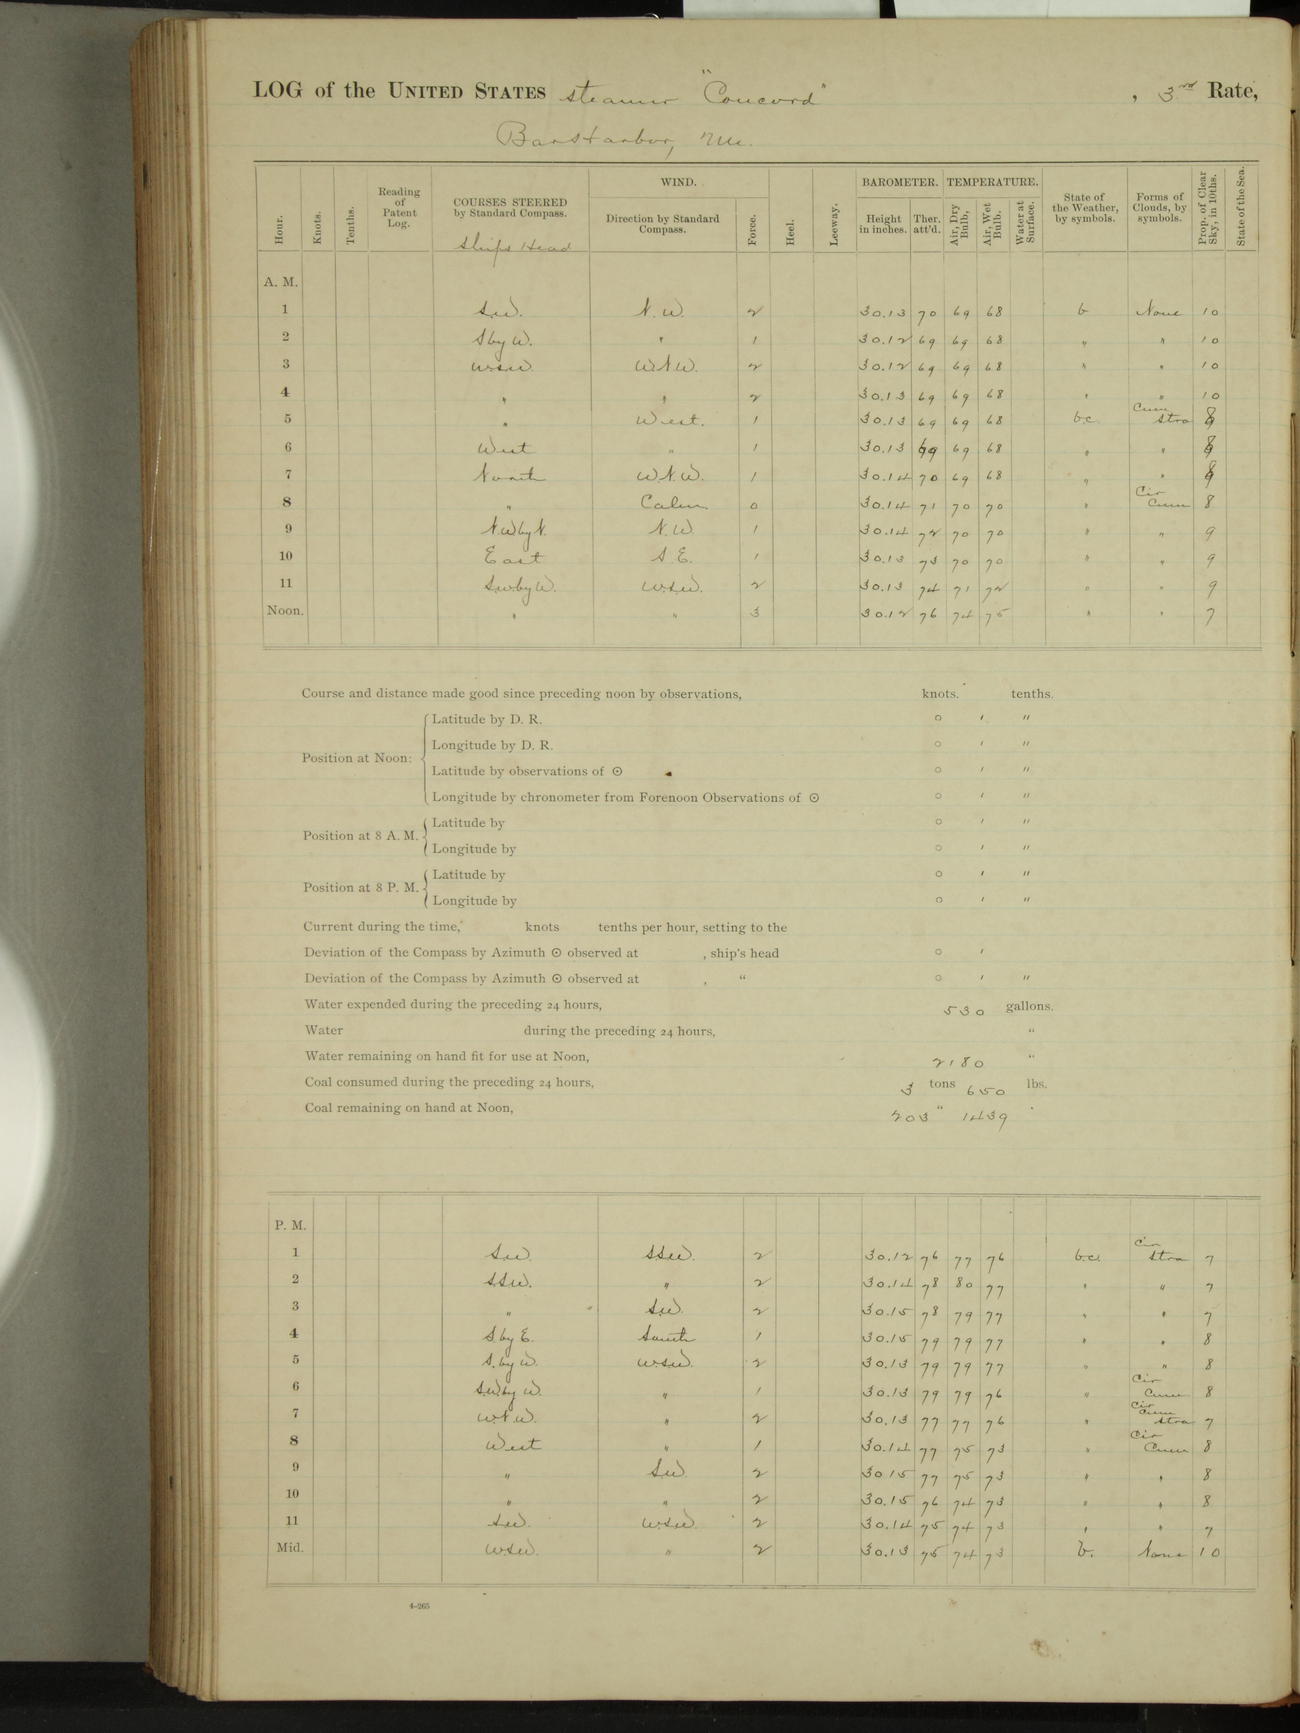 LOG of the UNITED STATES steamer "Concord", 3rd Rate,
Bar Harbor, Me.
Hour. Knots. Tenths. Reading of Patent Log. COURSES STEERED by Standard Compass. Ships Head WIND. Direction by Standard Compass. Force. Heel. Leeway. BAROMETER. Height in inches. Ther. att'd. TEMPERATURE. Air, Dry Bulb, Air, Wet Bulb. Water at Surface. State of the Weather, by symbols. Forms of Clouds, by symbols. Prop. of Clear Sky, in 10ths. State of the Sea.
A. M.
1 S.W. N.W. 2 30.13 70 69 68 b None 10
2 S by W. " 1 30.12 69 69 68 " " 10
3 WSW. WNW. 2 30.12 69 69 68 " " 10
4 " " 2 30.13 69 69 68 " " 10
5 " West. 1 30.13 69 69 68 b.c. Cum Stra 8
6 West " 1 30.13 69 69 68 " " 8
7 North W.N.W. 1 30.14 70 69 68 " " 8
8 " Calm 0 30.14 71 70 70 " Cir Cum 8
9 N.W by N. N.W. 1 30.14 72 70 70 " " 9
10 East S.E. 1 30.13 73 70 70 " " 9
11 S.W by W. WSW. 2 30.13 74 71 72 " " 9
Noon. " " 3 30.12 76 74 75 " " 7
Course and distance made good since preceding noon by observations, knots. tenths.
Position at Noon: Latitude by D. R. ° ′ ″
Longitude by D. R. ° ′ ″
Latitude by observations of ☉ ° ′ ″
Longitude by chronometer from Forenoon Observations of ☉ ° ′ ″
Position at 8 A. M. Latitude by ° ′ ″
Longitude by ° ′ ″
Position at 8 P. M. Latitude by ° ′ ″
Longitude by ° ′ ″
Current during the time, knots tenths per hour, setting to the
Deviation of the Compass by Azimuth ☉ observed at , ship's head ° ′
Deviation of the Compass by Azimuth ☉ observed at , " ° ′ ″
Water expended during the preceding 24 hours, 530 gallons.
Water during the preceding 24 hours, "
Water remaining on hand fit for use at Noon, 2180 "
Coal consumed during the preceding 24 hours, 3 tons 650 lbs.
Coal remaining on hand at Noon, 203 " 1439
P. M.
1 S.W. SSW. 2 30.12 76 77 76 b.c. Cir Stra 7
2 SSW. " 2 30.14 78 80 77 " " 7
3 " S.W. 2 30.15 78 79 77 " " 7
4 S by E. South 1 30.15 79 79 77 " " 8
5 S. by W. WSW. 2 30.13 79 79 77 " " 8
6 S.W by W. " 1 30.13 79 79 76 " Cir Cum 8
7 WNW. " 2 30.13 77 77 76 " Cir Cum Stra 7
8 West " 1 30.14 77 75 73 " Cir Cum 8
9 " S.W. 2 30 15 77 75 73 " " 8
10 " " 2 30.15 76 74 73 " " 8
11 S.W. WSW 2 30.14 75 74 73 " " 7
Mid. WSW. " 2 30.13 75 74 73 b. None 10
4-265